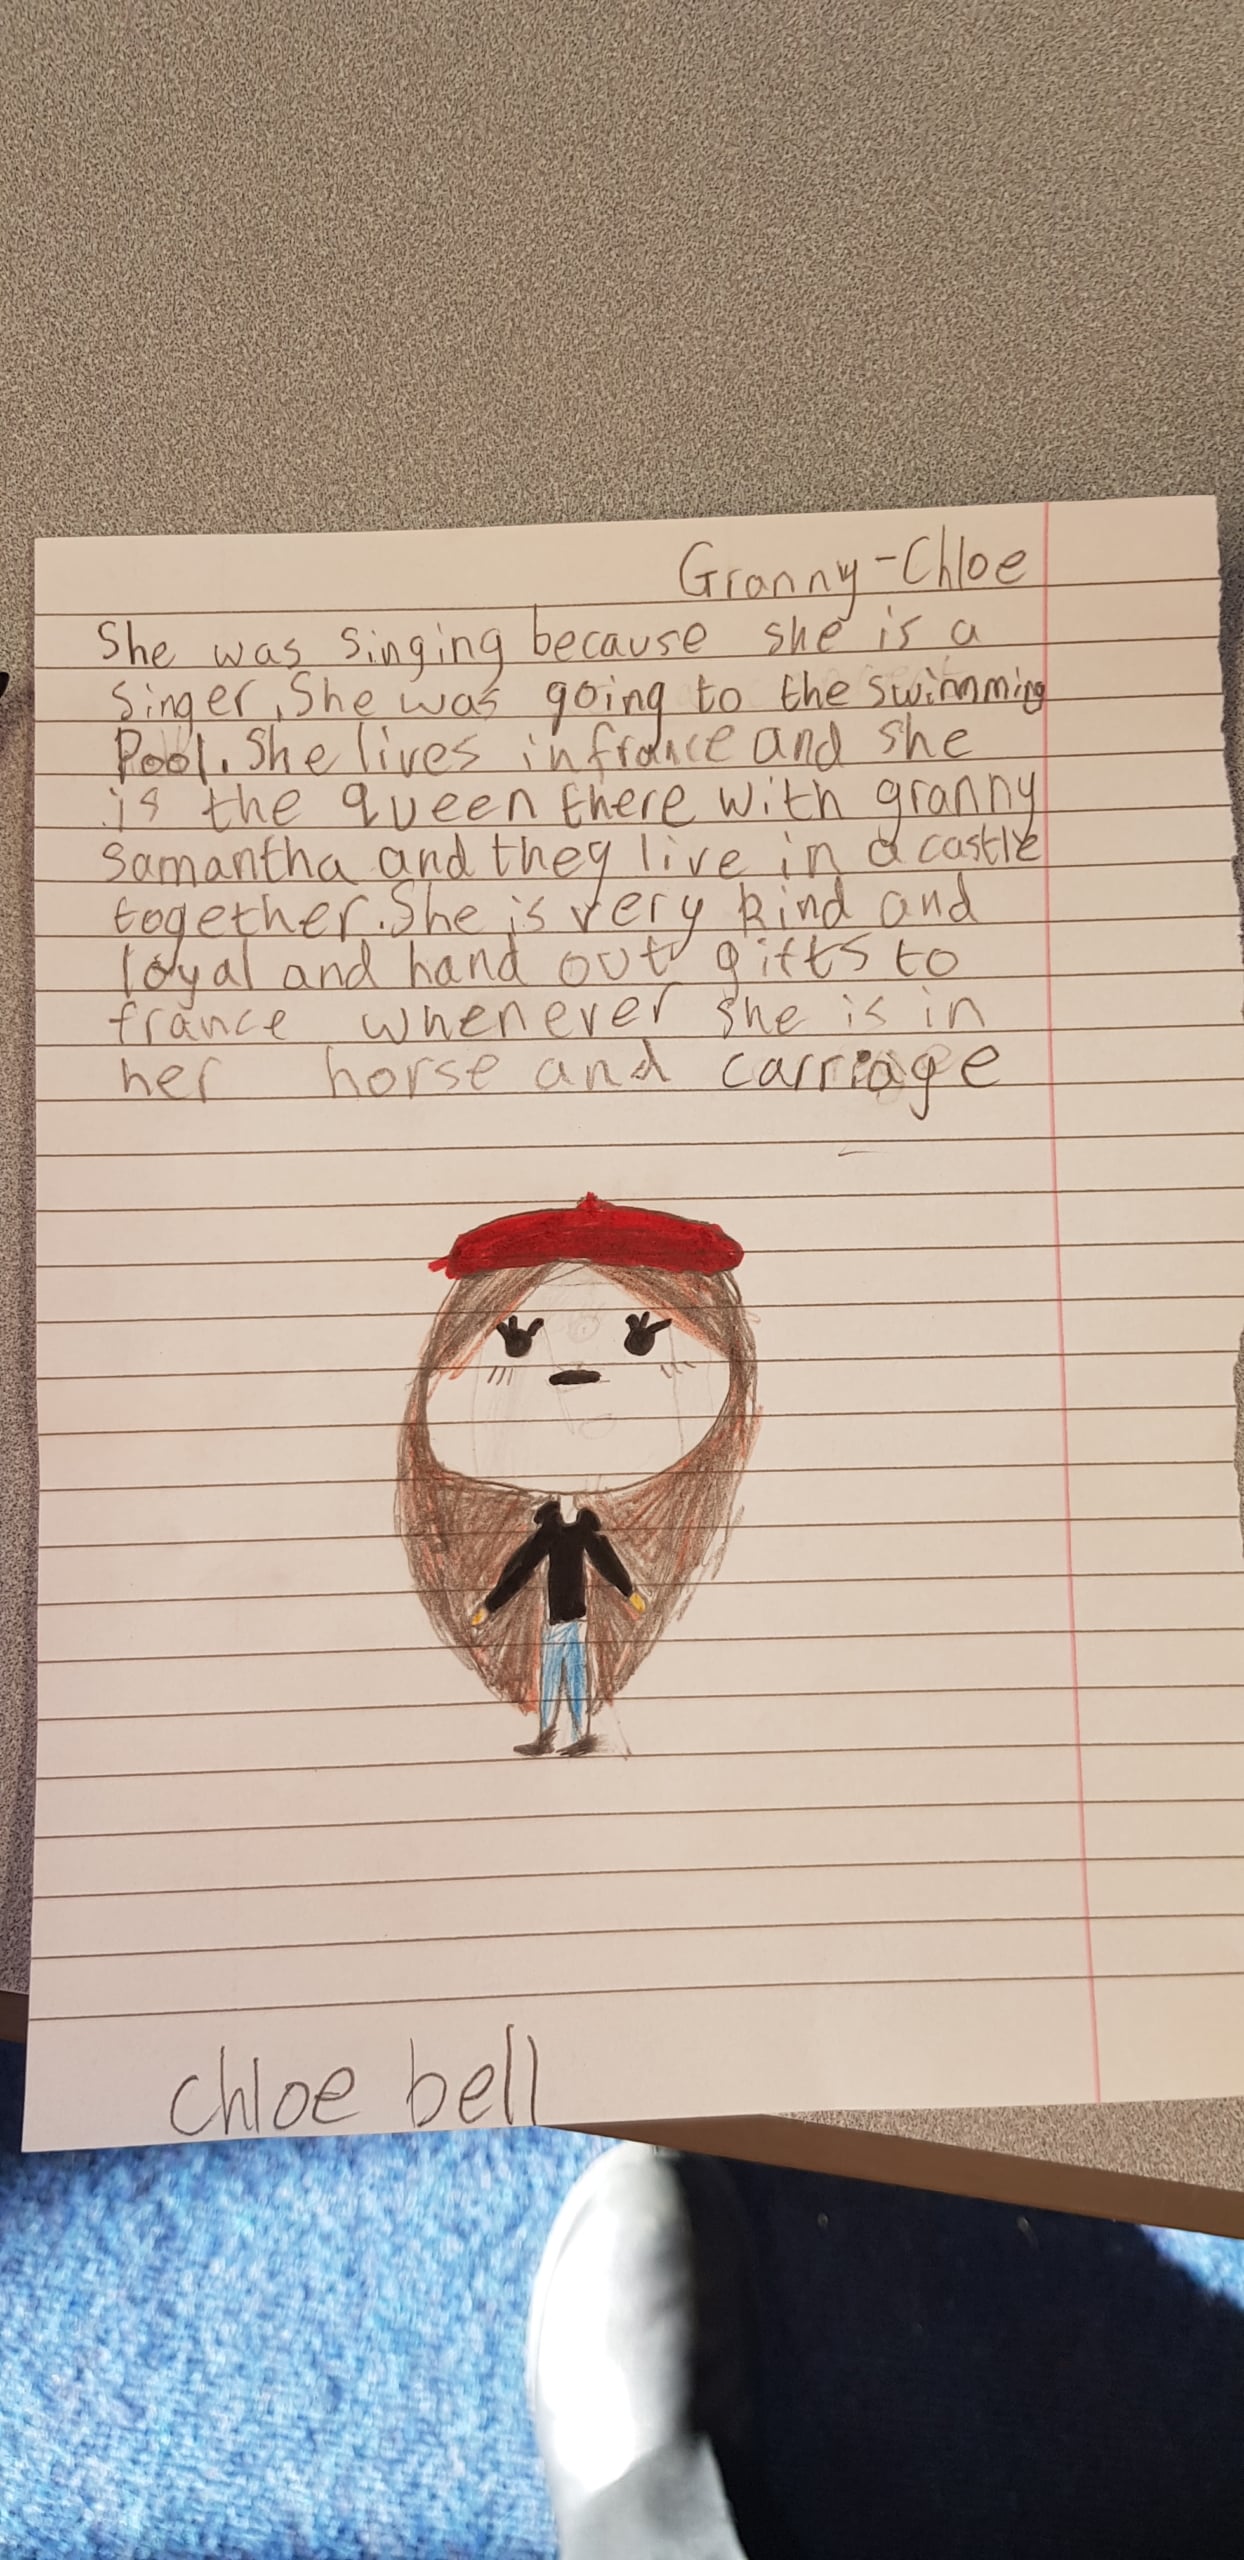 Granny-Chloe
She was singing because she is a
singer. She was going to the swimming
Pool. She lives in france and she
is the queen there with granny
samantha and they live in a castle
together. She is very kind and
loyal and hand out gifts to
france whenever she is in
her horse and carriage
chloe bell